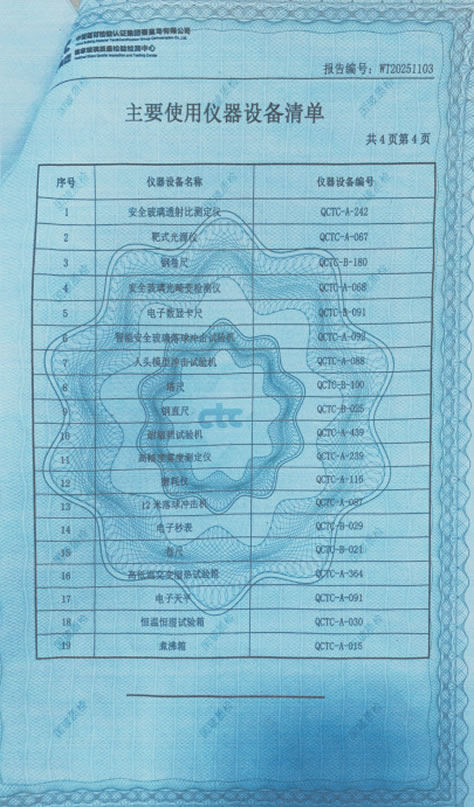 中国建材检验认证集团秦皇岛有限公司
国家玻璃质量检验检测中心
报告编号：WT20251103
主要使用仪器设备清单
共4页第4页
序号 仪器设备名称 仪器设备编号
1 安全玻璃透射比测定仪 QCTC-A-242
2 靶式光源仪 QCTC-A-067
3 钢卷尺 QCTC-B-180
4 安全玻璃光畸变检测仪 QCTC-A-068
5 电子数显卡尺 QCTC-B-091
6 智能安全玻璃落球冲击试验机 QCTC-A-092
7 人头模型冲击试验机 QCTC-A-088
8 塔尺 QCTC-B-100
9 钢直尺 QCTC-B-025
10 试验机 QCTC-A-439
11 雾度测定仪 QCTC-A-239
12 磨耗仪 QCTC-A-116
13 12米落球冲击机 QCTC-A-087
14 电子秒表 QCTC-B-029
15 卷尺 QCTC-B-021
16 高低温交变湿热试验箱 QCTC-A-364
17 电子天平 QCTC-A-091
18 恒温恒湿试验箱 QCTC-A-030
19 煮沸箱 QCTC-A-015
ctc